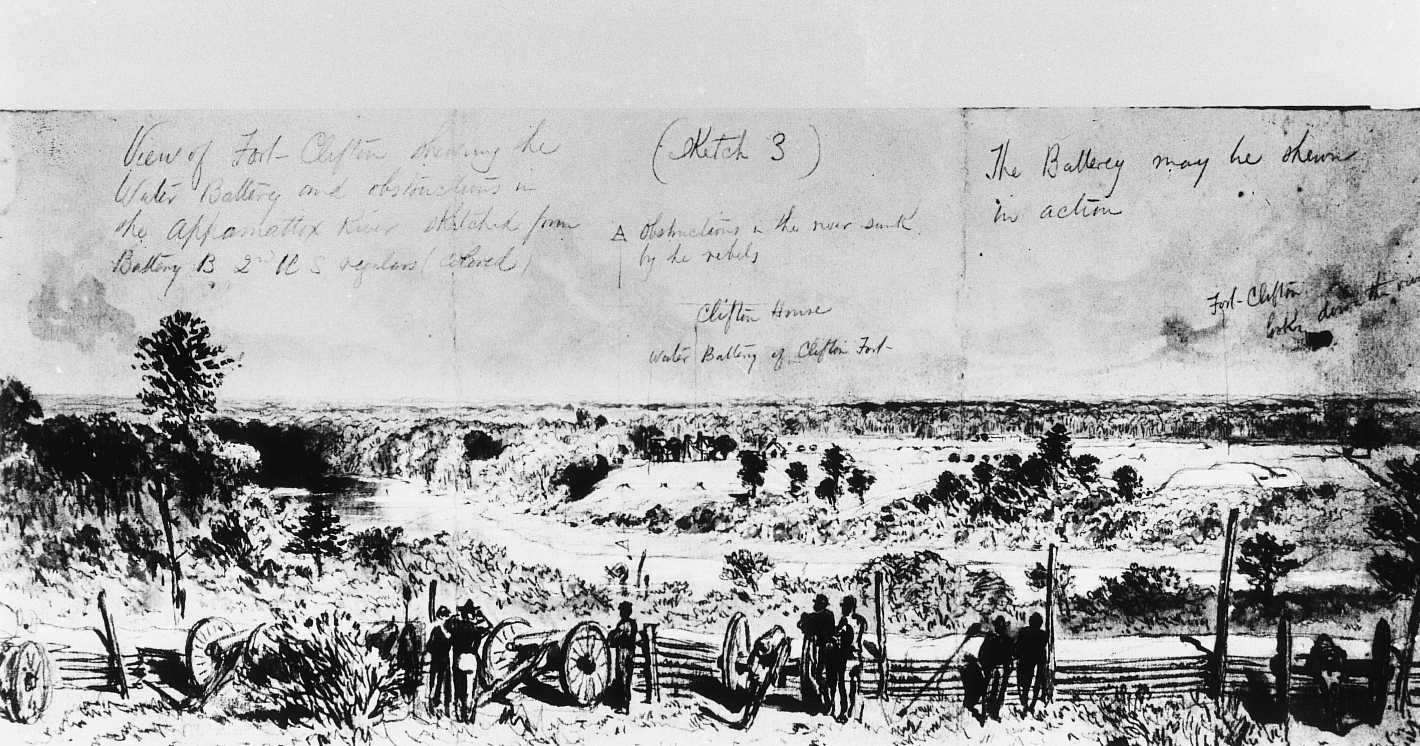 View of Fort-Clifton shewing the
Water Battery and obstructions in
the Appamattox River sketched from
Battery B 2nd U S regulars (Colored)
(Sketch 3)
Obstructions in the river sunk
by the rebels
Clifton House
Water Battery of Clifton Fort
The Batterey may be shewn
in action
Fort-Clifton
looking down the river